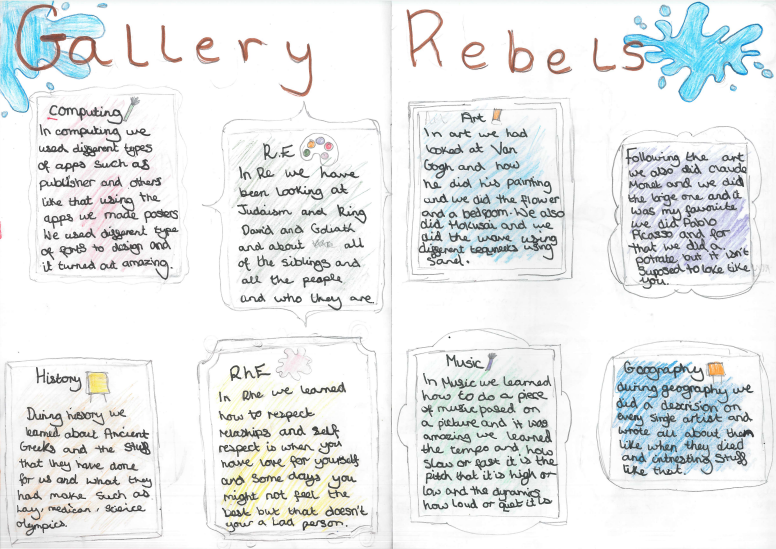 Gallery Rebels
Computing
In computing we
used different types
of apps such as
publisher and others
like that using the
apps we made posters
We used different type
of fonts to design and
it turned out amazing.
R.E
In Re we have
been looking at
Judaism and King
David and Goliath
and about all
of the siblings and
all the people
and who they are
Art
In art we had
looked at Van
Gogh and how
he did his painting
and we did the flower
and a bedroom. We also
did Hokusai and we
did the wave using
different teqneeks using
Following the art
we also did Claude
Monet and we did
the large one and it
was my favourite
we did Pablo
Picasso and for
that we did a
potrate but it isn't
suposed to look like
you.
History
During history we
learned about Ancient
Greeks and the stuff
that they have done
for us and what they
had make such as
Law, medican, science
olympics.
RhE
In Rhe we learned
how to respect
relaships and self
respect is when you
have love for yourself
and some days you
might not feel the
best but that doesn't
your a bad person.
Music
In Music we learned
how to do a piece
of music posed on
a picture and it was
amazing we learned
the tempo and how
slow or fast it is the
pitch that it is high or
low and the dynamics
how loud or quiet it is
Geography
during geography we
did a descrision on
every singe artist and
wrote all about them
like when they died
and intresting stuff
like that.